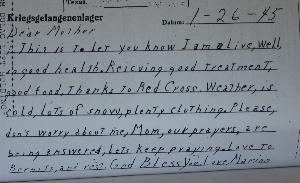 Kriegsgefangenenlager Datum: 1-26-45
Dear Mother
This is to let you know I am alive, well,
in good health, Reiceving good treatment,
good food, Thanks to Red Cross. Weather, is
cold, lots of snow, plenty clothing. Please,
don't worry about me, Mom, our prayers, are
being answered, lets keep praying. Love to
and God Bless you Love Marion